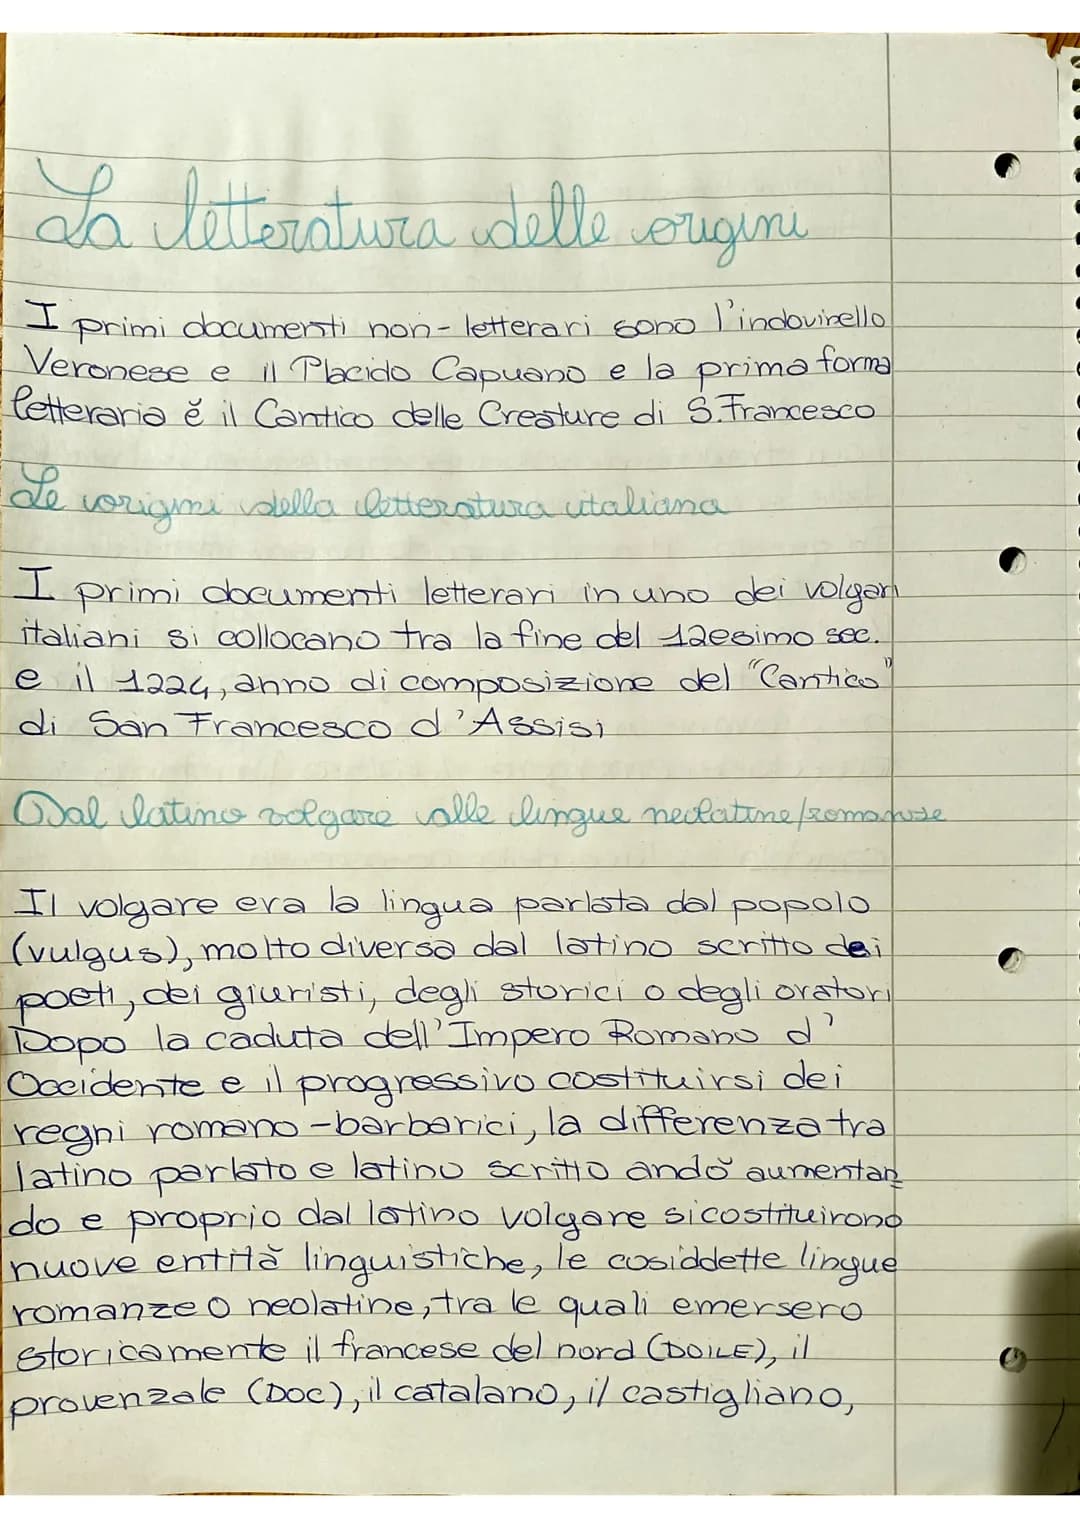 La letteratura delle origini
I primi documenti non-letterari sono l'indovinello
Veronese e il Placido Capuano e la prima forma
letteraria è il Cantico delle Creature di S.Francesco
Le origini della letteratura italiana
I primi documenti letterari in uno dei volgari
italiani si collocano tra la fine del 12esimo sec.
e il 1224, anno di composizione del "Cantico"
di San Francesco d'Assisi
Dal latino volgare alle lingue neolatine/romanze
Il volgare era la lingua parlata dal popolo
(vulgus), molto diversa dal latino scritto dei
poeti, dei giuristi, degli storici o degli oratori
Dopo la caduta dell'Impero Romano d'
Occidente e il progressivo costituirsi dei
regni romano-barbarici, la differenza tra
latino parlato e latino scritto andò aumentan
do e proprio dal latino volgare si costituirono
nuove entità linguistiche, le cosiddette lingue
romanze o neolatine, tra le quali emersero
storicamente il francese del nord (DOILE), il
provenzale (DOC), il catalano, il castigliano,